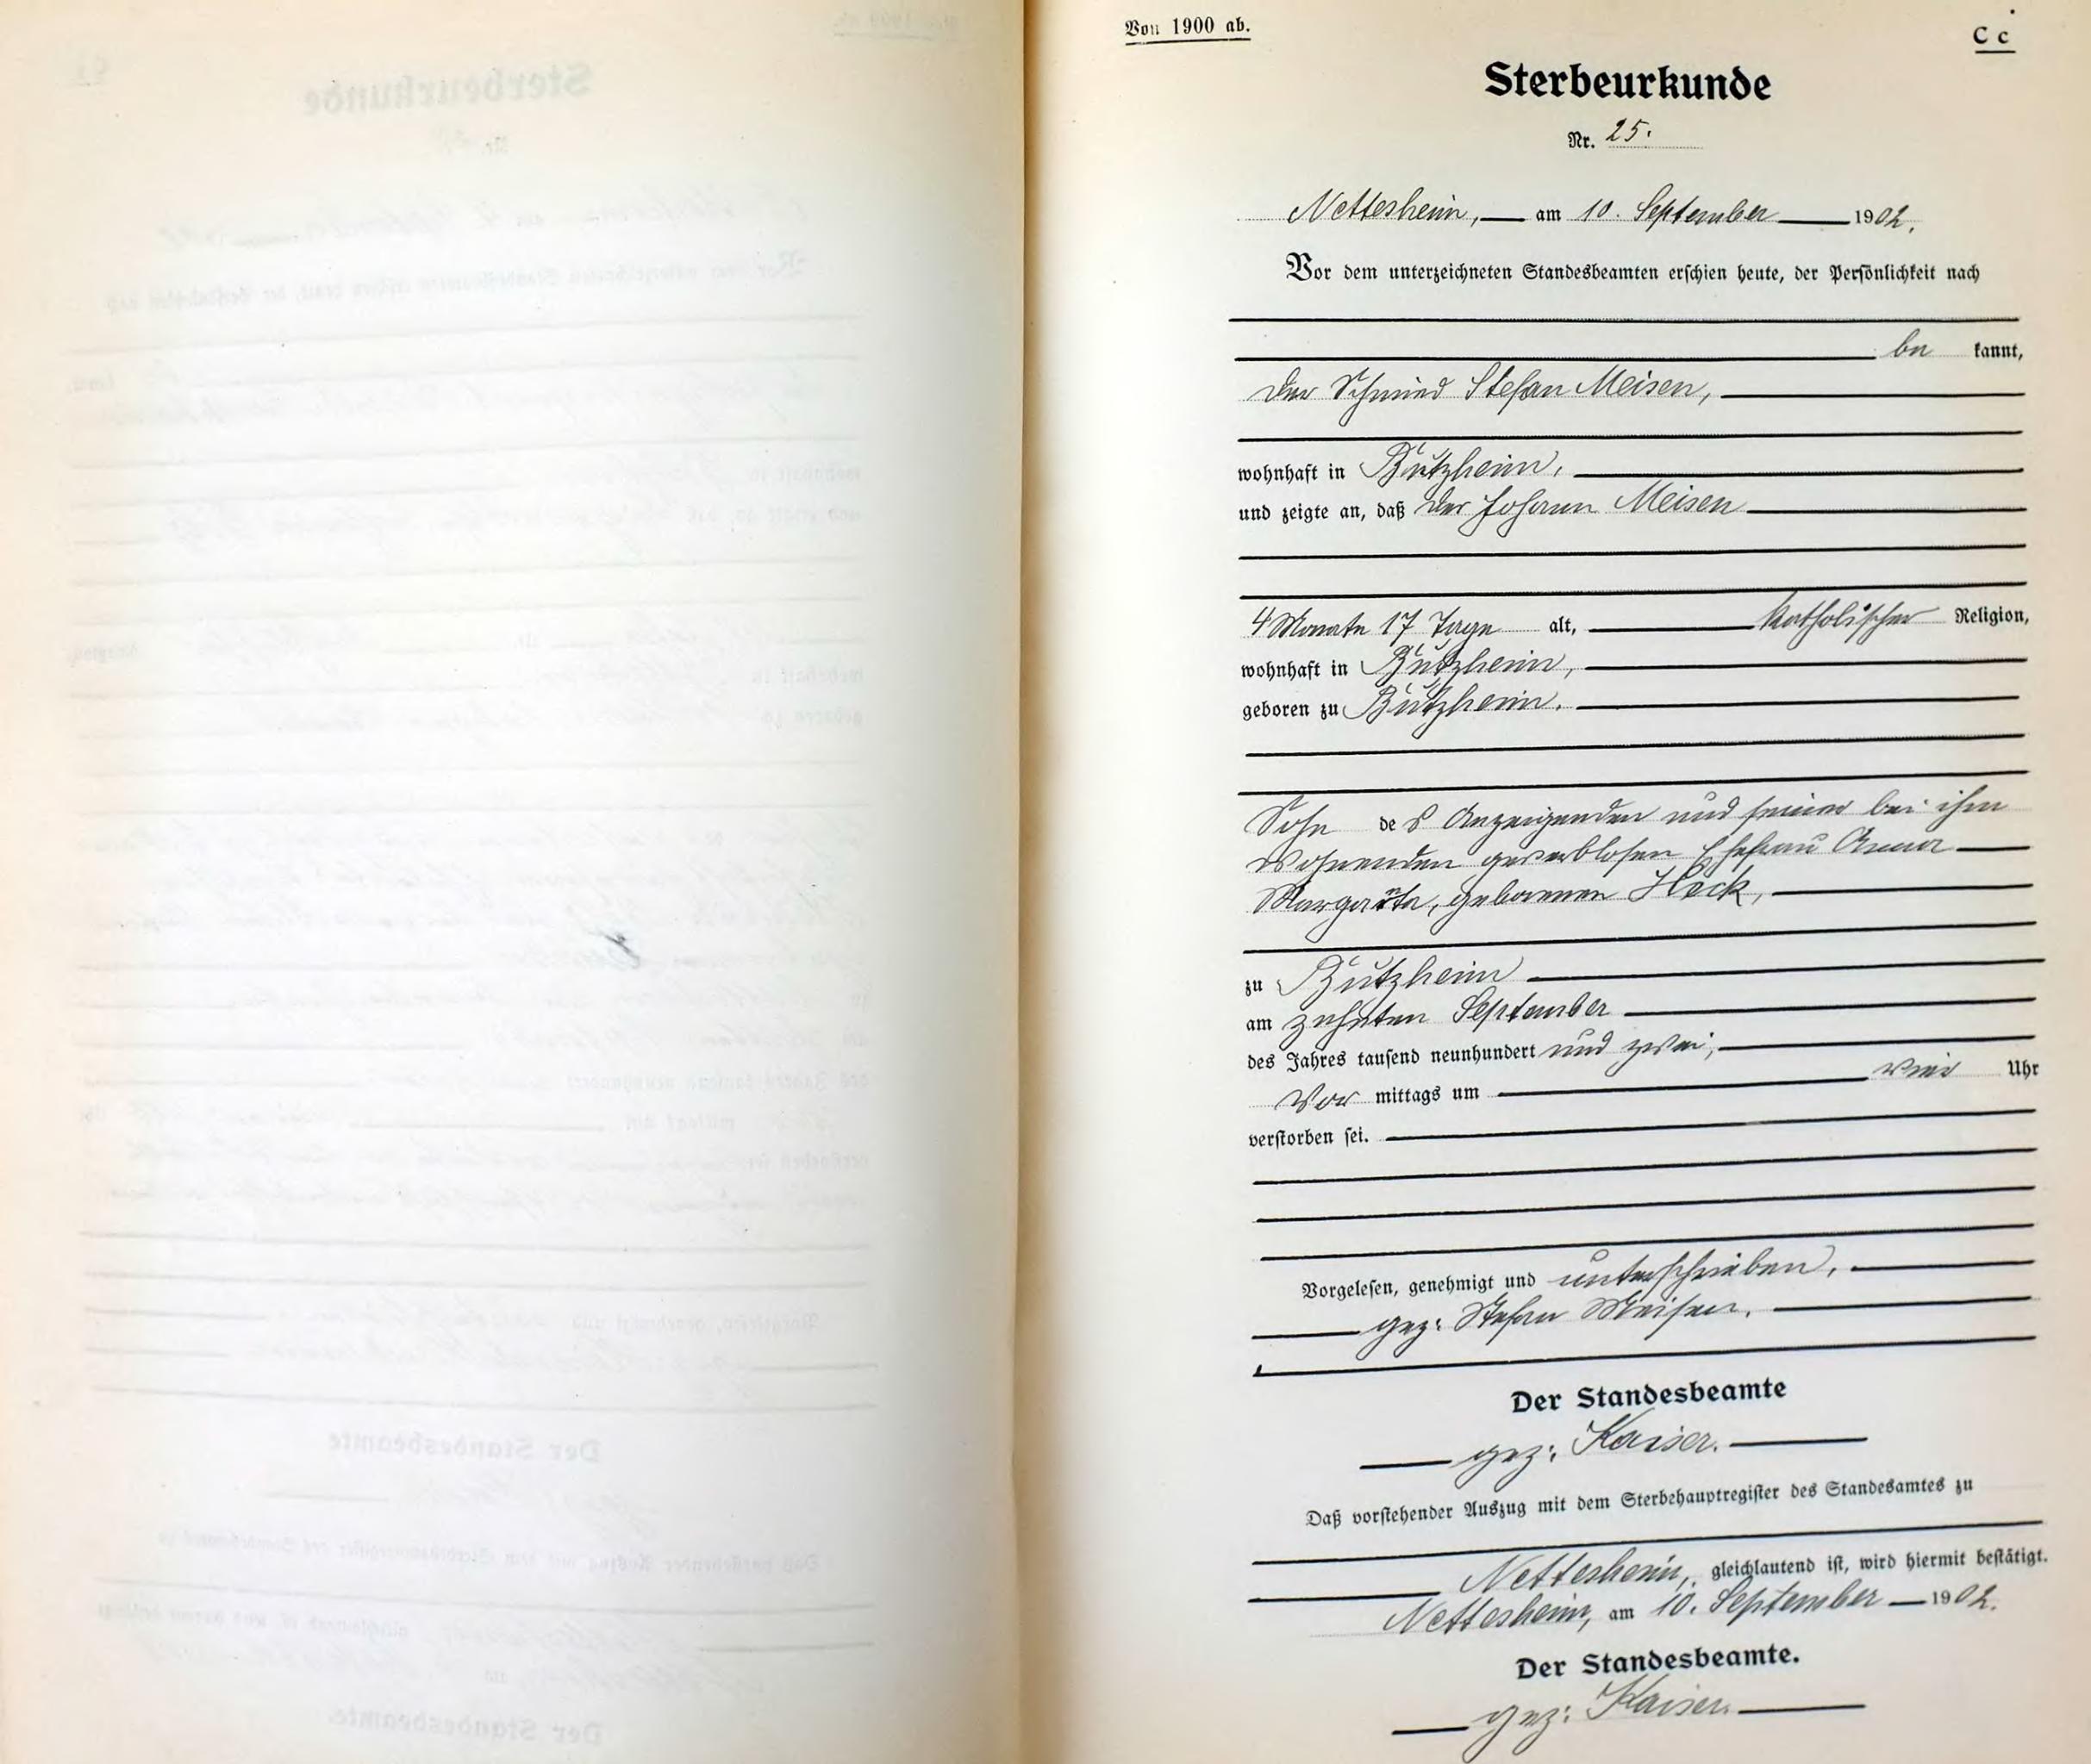 Von 1900 ab.
C c
Sterbeurkunde
Nr. 25.
Nettesheim, am 10. September 1902.
Vor dem unterzeichneten Standesbeamten erschien heute, der Persönlichkeit nach
be kannt,
der Schmied Stefan Meisen,
wohnhaft in Bützheim,
und zeigte an, daß der Johann Meisen
4 Monate 17 Tage alt, katholischer Religion,
wohnhaft in Bützheim,
geboren zu Bützheim,
Sohn des Anzeigenden und seiner bei ihm
wohnenden gewerblosen Ehefrau Anna
Margareta, geborenen Heck,
zu Bützheim
am zehnten September
des Jahres tausend neunhundert und zwei,
Vor mittags um vier Uhr
verstorben sei.
Vorgelesen, genehmigt und unterschrieben,
gez: Stefan Meisen.
Der Standesbeamte
gez: Kaiser.
Daß vorstehender Auszug mit dem Sterbehauptregister des Standesamtes zu
Nettesheim, gleichlautend ist, wird hiermit bestätigt.
Nettesheim, am 10. September 1902.
Der Standesbeamte.
gez: Kaiser.